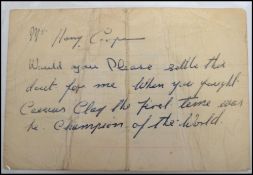 Mr Henry Cooper
Would you Please settle this
dout for me When you fought
Cassius Clay the first time was
he Champion of the World.